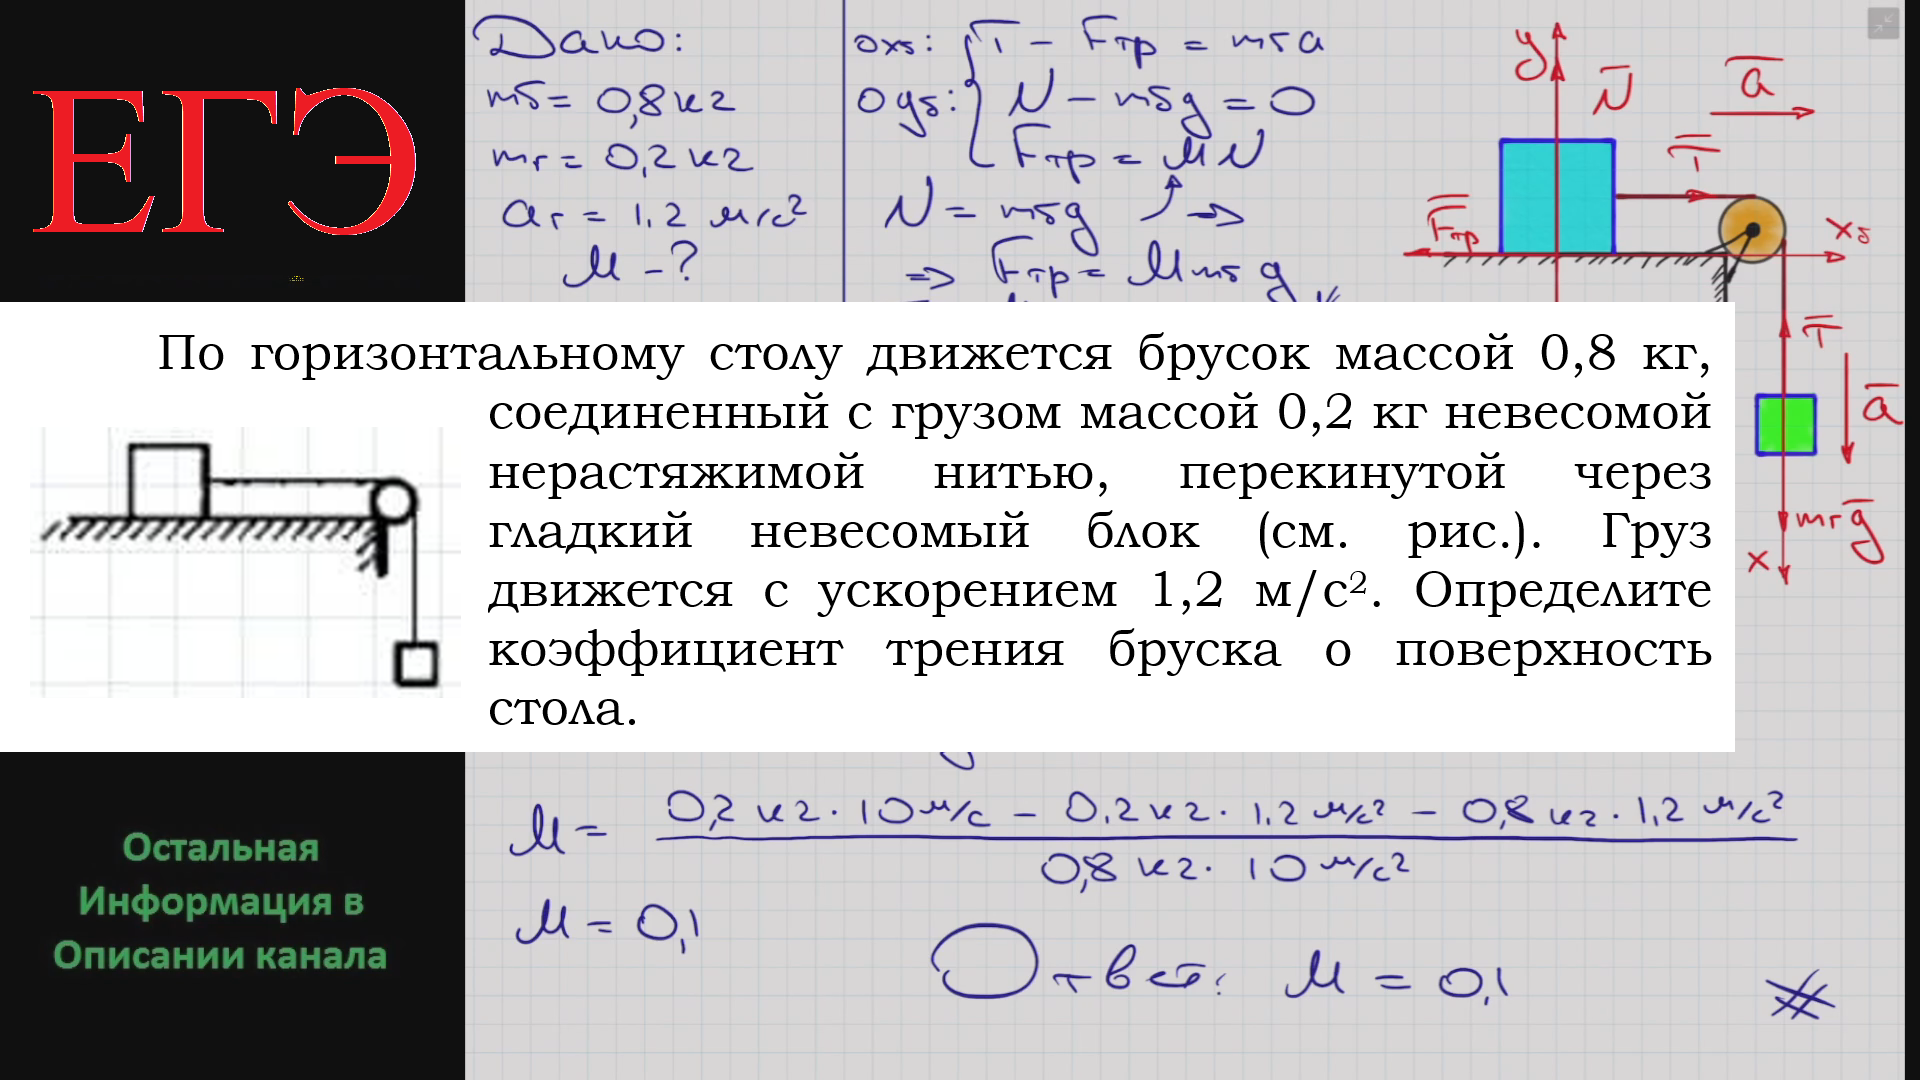 ЕГЭ
Дано:
mб = 0,8 кг
mг = 0,2 кг
aг = 1,2 м/с²
μ - ?
oxб: T - Fтр = mбa
oyб: N - mбg = 0
Fтр = μN
N = mбg ⇒
⇒ Fтр = μmбg
y
N
a
T
Fтр
xб
T
a
mгg
x
По горизонтальному столу движется брусок массой 0,8 кг,
соединенный с грузом массой 0,2 кг невесомой
нерастяжимой нитью, перекинутой через
гладкий невесомый блок (см. рис.). Груз
движется с ускорением 1,2 м/с². Определите
коэффициент трения бруска о поверхность
стола.
μ = 0,2 кг · 10 м/с - 0,2 кг · 1,2 м/с² - 0,8 кг · 1,2 м/с²
0,8 кг · 10 м/с²
μ = 0,1
Ответ: μ = 0,1
Остальная
Информация в
Описании канала